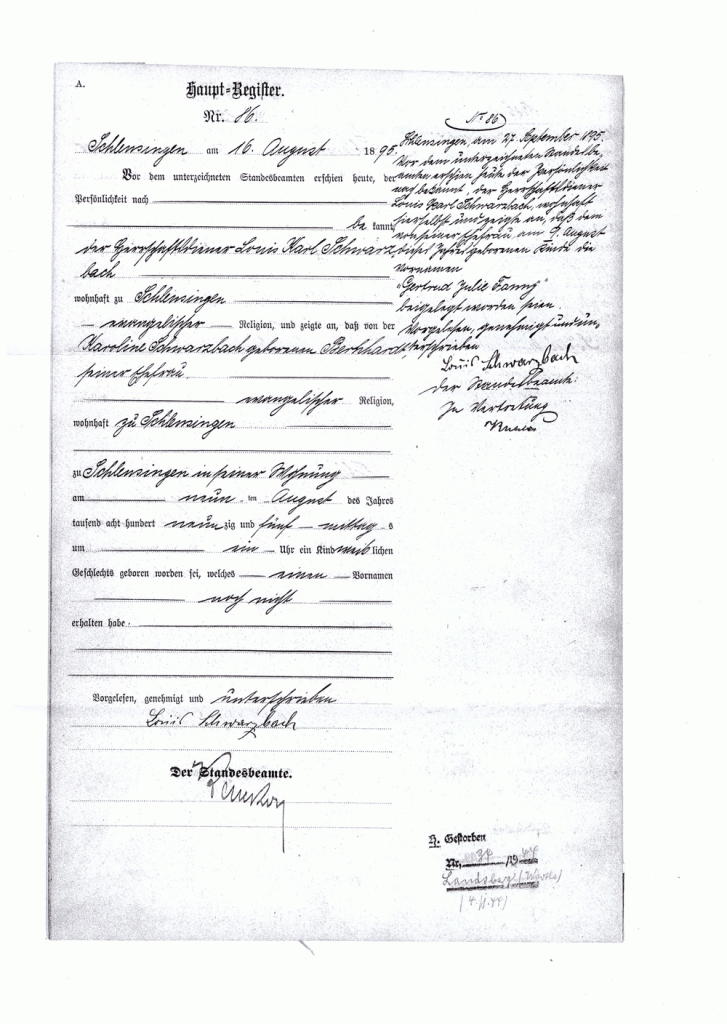 A.
Haupt-Register.
Nr. 86.
Schleusingen am 16. August 1895.
Vor dem unterzeichneten Standesbeamten erschien heute, der
Persönlichkeit nach
bekannt,
der Herrschaftsdiener Louis Karl Schwarz
bach
wohnhaft zu Schleusingen
evangelischer Religion, und zeigte an, daß von der
Karoline Schwarzbach geborenen Bernhardt
seiner Ehefrau
evangelischer Religion,
wohnhaft zu Schleusingen
zu Schleusingen in seiner Wohnung
am neun ten August des Jahres
tausend acht hundert neunzig und fünf mittags
um ein Uhr ein Kind weiblichen
Geschlechts geboren worden sei, welches einen Vornamen
noch nicht
erhalten habe.
Vorgelesen, genehmigt und unterschrieben
Louis Schwarzbach
Der Standesbeamte.
No 86
Schleusingen, am 27. September 1895.
Vor dem unterzeichneten Standesbe,
amten erschien heute der Persönlichkeit
nach bekannt, der Herrschaftsdiener
Louis Karl Schwarzbach, wohnhaft
hierselbst und zeigte an, daß dem
von seiner Ehefrau am 9. August
dieses Jahres geborenen Kinde die
Vornamen
"Gertrud Julie Fanny"
beigelegt worden seien.
Vorgelesen, genehmigt und un,
terschrieben
Louis Schwarzbach
Der Standesbeamte:
In Vertretung
H. Gestorben
Nr. 1944
Landsberg (Warthe)